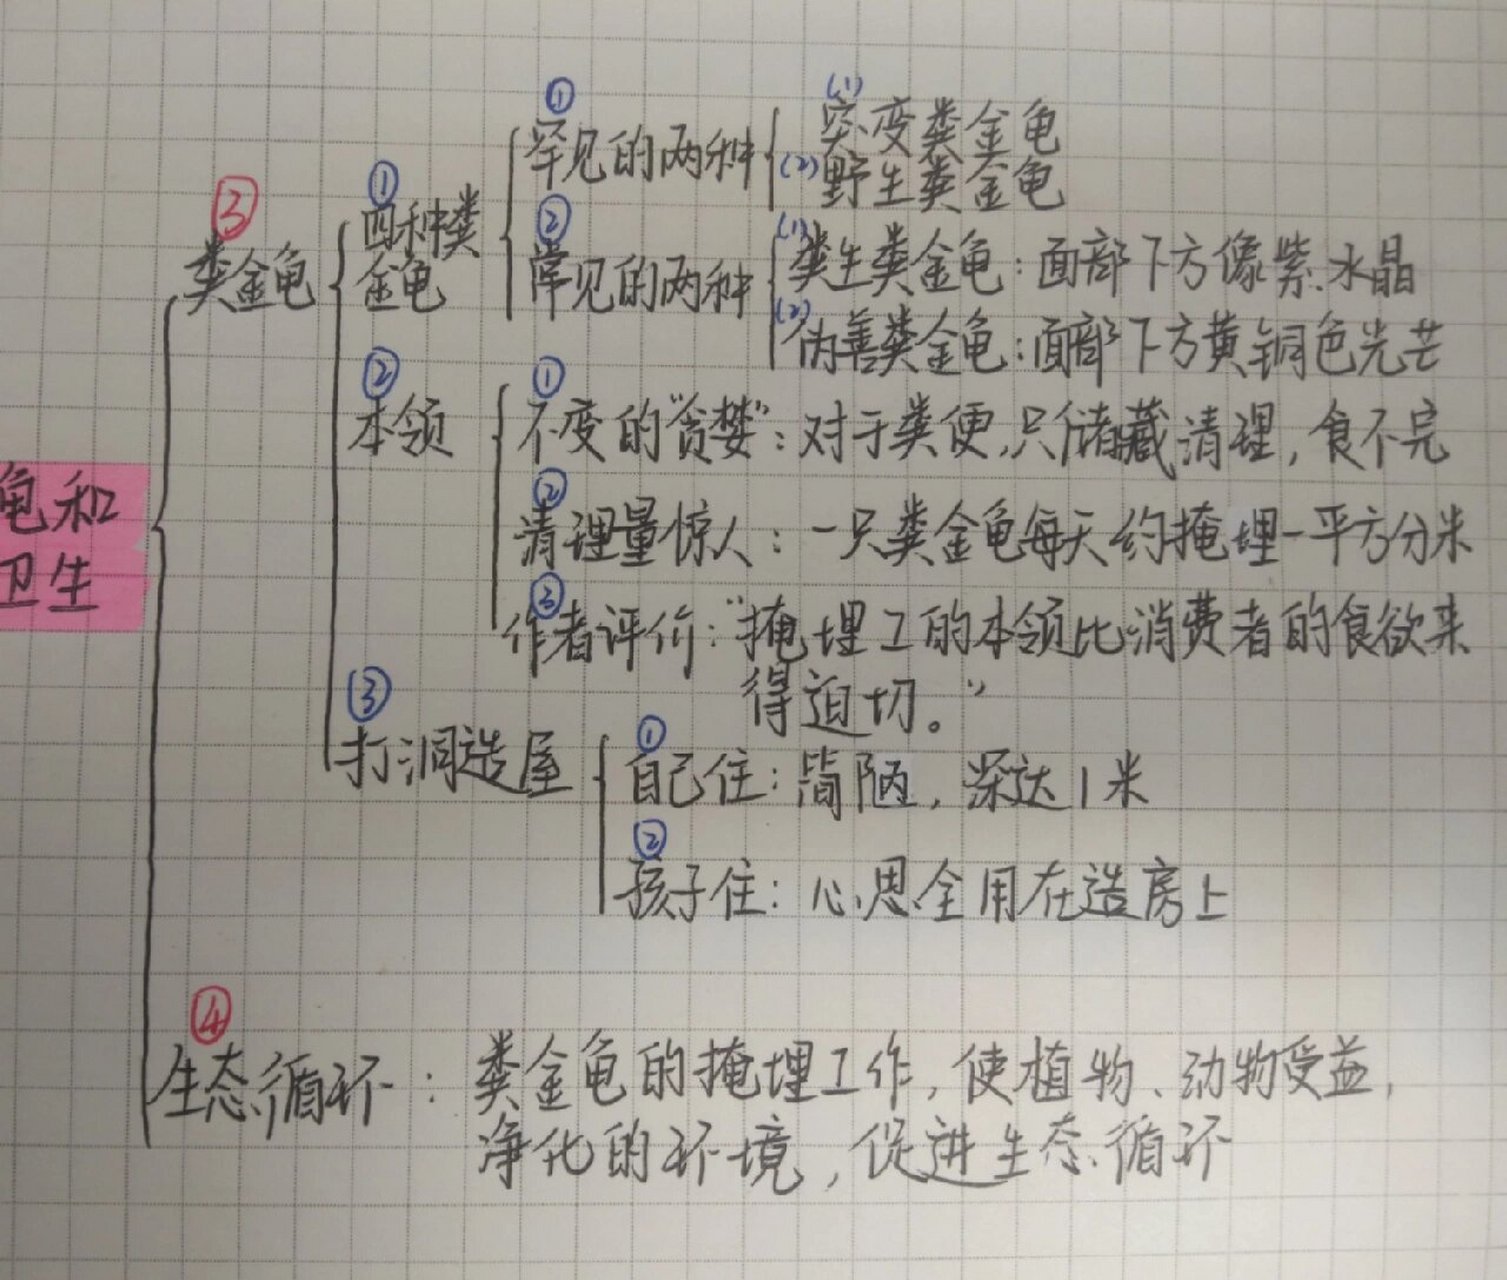 ①
(1)
突变粪金龟
罕见的两种
(2) 野生粪金龟
③
①
四种粪
金龟
粪金龟
②
常见的两种
(1) 粪生粪金龟：面部下方像紫水晶
(2) 伪善粪金龟：面部下方黄铜色光芒
②
本领
①
不变的“贪婪”：对于粪便，只储藏清理，食不完
龟和
卫生
②
清理量惊人：一只粪金龟每天约掩埋一平方分米
③
作者评价：“掩埋工的本领比消费者的食欲来
得迫切。”
③
打洞造屋
①
自己住：简陋，深达1米
②
孩子住：心思全用在造房上
④
生态循环：粪金龟的掩埋工作，使植物、动物受益，
净化的环境，促进生态循环